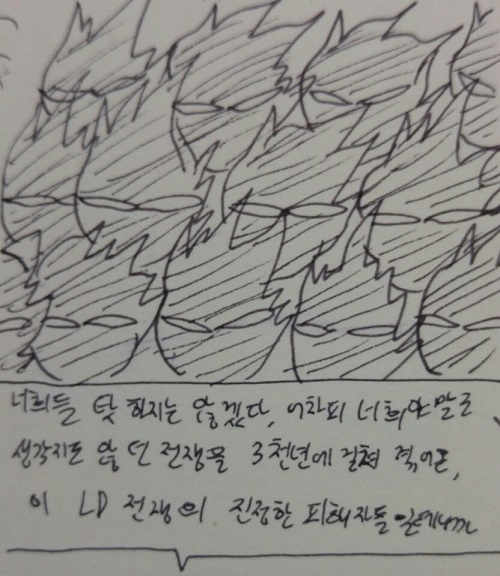 너희들 탓 하지는 않겠다, 어차피 너희야 말로
생각지도 않던 전쟁을 3천년에 걸쳐 겪어온,
이 LD 전쟁의 진정한 피해자들 일테니까